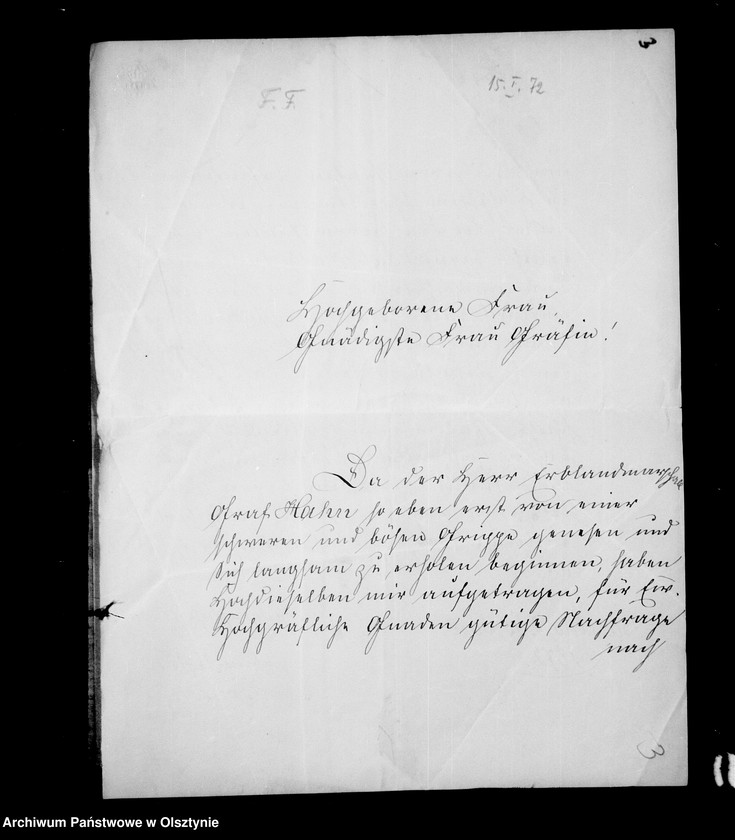 3
F. F.
15. I. 72
Hochgeborene Frau,
Gnädigste Frau Gräfin!
Da der Herr Erblandmarschall
Graf Hahn so eben erst von einer
schweren und bösen Grippe genesen und
Sich langsam zu erholen beginnen, haben
Hochdieselben mir aufgetragen, für Ew.
Hochgräfliche Gnaden gütige Nachfrage
nach
3
Archiwum Państwowe w Olsztynie